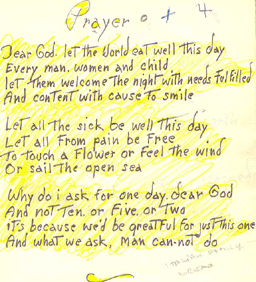 Prayer 4
Dear God. let the World eat well this day
Every man. women and child.
let Them welcome The night with needs fulfilled
And content with cause to smile
Let all The sick be well This day
Let all From pain be Free
To Touch a Flower or Feel the wind
Or sail The open sea
Why do i ask for one day. dear God
And not Ten. or Five. or Two
it's because we'd be greatful for just this one
And what we ask, Man can-not do